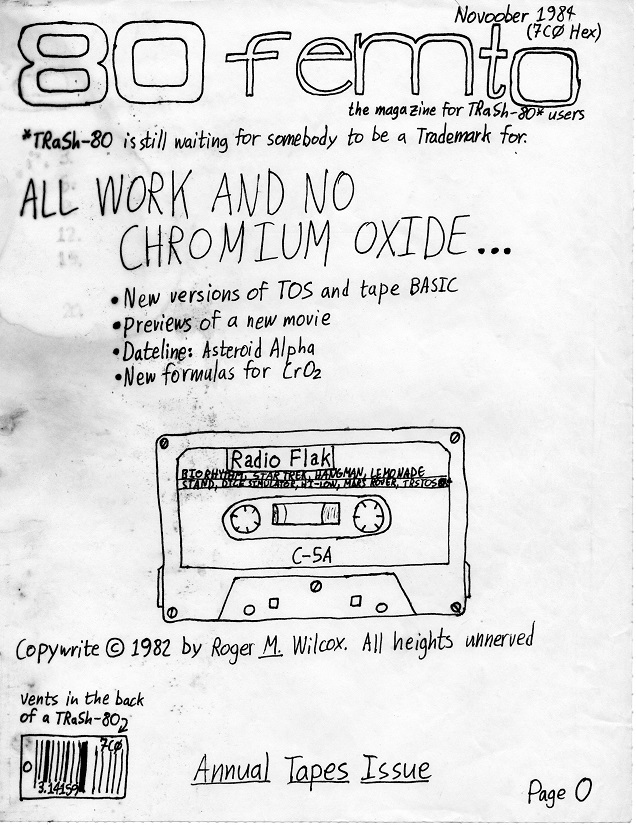 Novoober 1984
(7CØ Hex)
80 femto
the magazine for TRaSh-80* users
*TRaSh-80 is still waiting for somebody to be a Trademark for.
ALL WORK AND NO
CHROMIUM OXIDE...
•New versions of TOS and tape BASIC
•Previews of a new movie
•Dateline: Asteroid Alpha
•New formulas for CrO2
Radio Flak
BIORHYTHM, STAR TREK, HANGMAN, LEMONADE
STAND, DICE SIMULATOR, HI-LOW, MARS ROVER, TRSTOS
C-5A
Copywrite © 1982 by Roger M. Wilcox. All heights unnerved
vents in the back
of a TRaSh-80
7CØ
0
3.14159
Annual Tapes Issue
Page 0